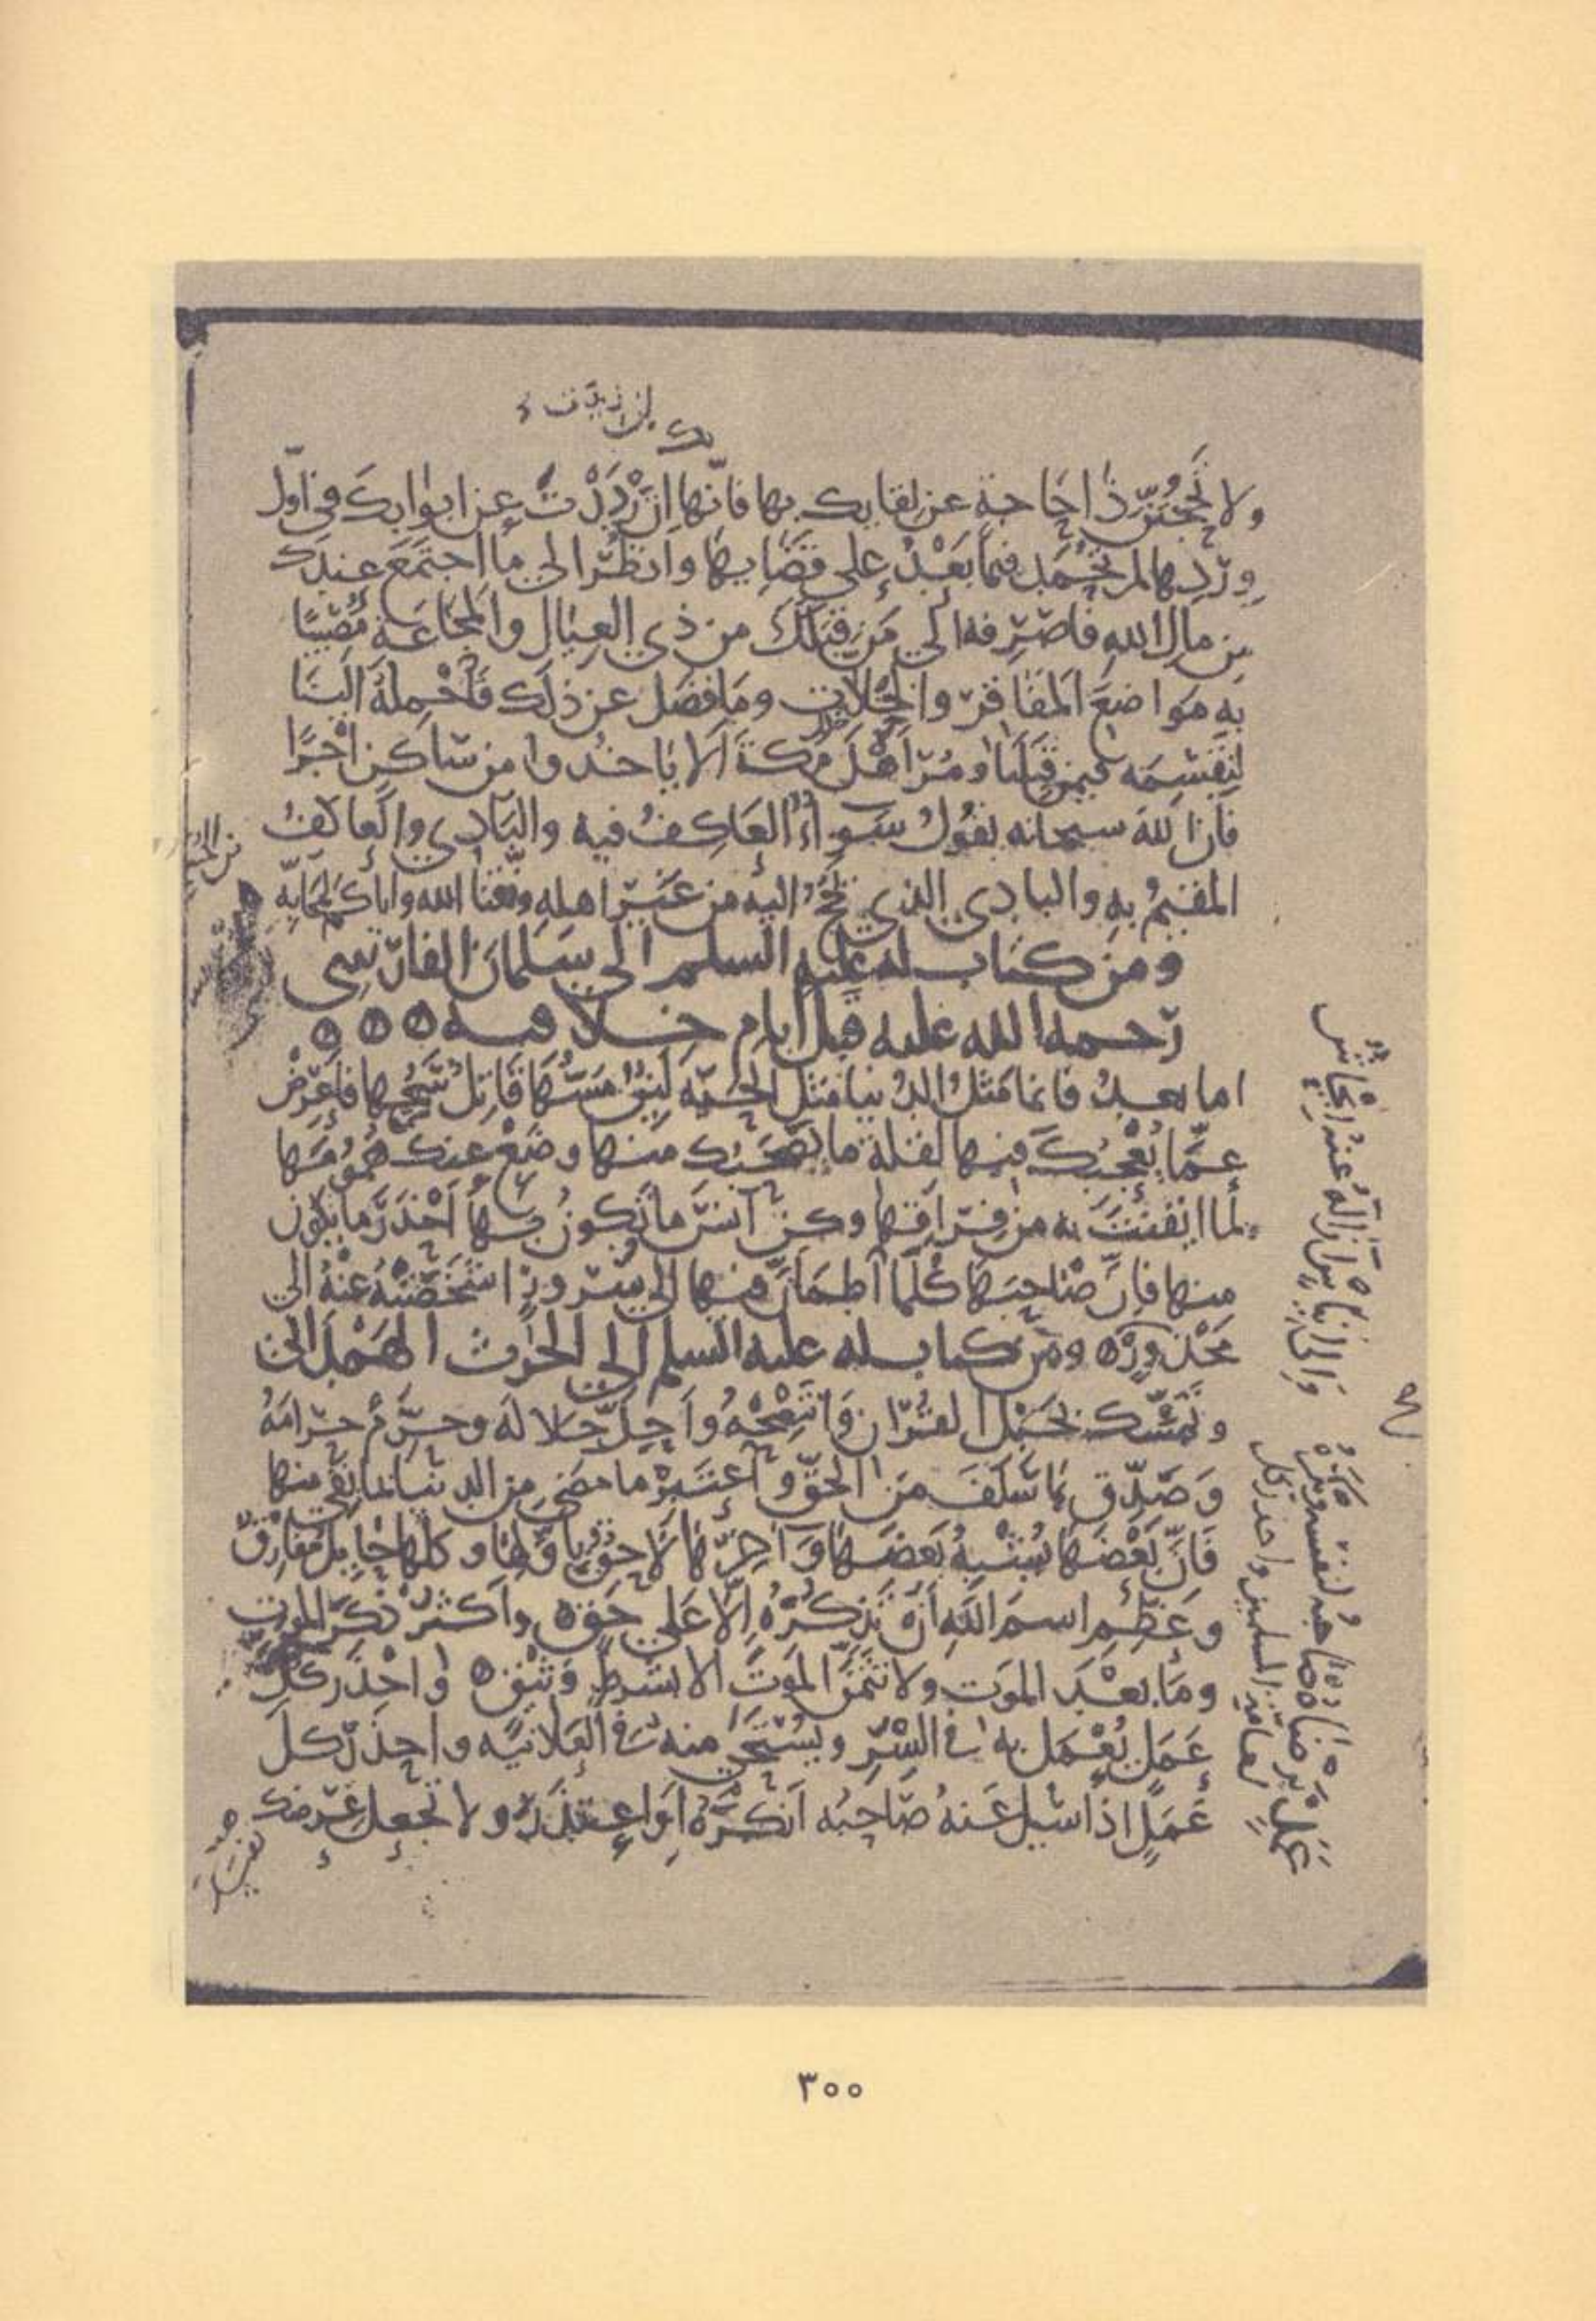 ولا تَحْجُبَنَّ ذَا حَاجَةٍ عن لقايك بها فانّها اِنْ رُدَّتْ عن ابوابك في اوّل
وِرْدِها لم تُحْمَد فيما بَعْدُ على قضايها وانظر الى ما اجتمَعَ عندك
من مال الله فاصرفه الى من قِبَلَكَ من ذي العيال والمجاعة مُصيبًا
به مواضعَ المفاقر والخلّات وما فضل عن ذلك فَاَحْمِلهُ الينا
لنقسمه فيمن قِبَلَنا ومُرْ اَهْلَ مكة ألا ياخذوا من ساكن اجْرًا
فان الله سبحانه يقول سواءً العاكف فيه والبادي والعاكف
المقيم به والبادي الذي يَحُجّ اليه من غير اهله وفّقنا الله واياكم لمحابّه
ومن كتاب له عليه السلم الى سلمان الفارسي
رحمه الله عليه قبل ايام خلافته
اما بعد فانما مَثَلُ الدنيا مَثَل الحيّة لَيِّنٌ مَسُّهَا قَاتِلٌ سَمُّها فاعرض
عمّا يُعْجِبُكَ فيها لقلة ما يصحبك منها وضَعْ عنك همومها
لما ايقنتَ به من فراقها وكن آنسَ ما تكون بها اَحْذَرَ ما تكون
منها فانّ صاحبها كلّما اطمانّ فيها الى سرورٍ اشخَصَتْهُ عَنْهُ الى
مَحْذورٍ ومن كتاب له عليه السلم الى الحرث الهمداني
وتمسّك بحَبْل القرآن وانتصِحْهُ واَحِلّ حلاله وحرِّمْ حرامَهُ
وصدّق بما سَلَفَ من الحقّ واعتبرْ ما مضى من الدنيا بما بقي منها
فانّ بَعْضَها يُشْبِهُ بَعضها وآخِرَها لاحِقٌ باوّلها وكلّها حايل مُفارِقٌ
وعَظِّم اسم الله اَنْ تَذكُرَهُ اِلّا على حق واكثر ذكر الموت
وما بعْدَ الموت ولا تتمنّ الموتَ الا بشرطٍ وثيق واحْذَر كلّ
عَمَلٍ يُعْمَل به في السِّرّ ويُسْتَحى منه في العلانية واحذر كل
عَمَلٍ اذا سُيل عنه صاحبُه اَنكرَهُ اَو اعتذر ولا تجعل عِرْضك
عَمَلٍ يرضاه صاحبُه لنفسه ويكره
لعامة المسلمين واحذر كل